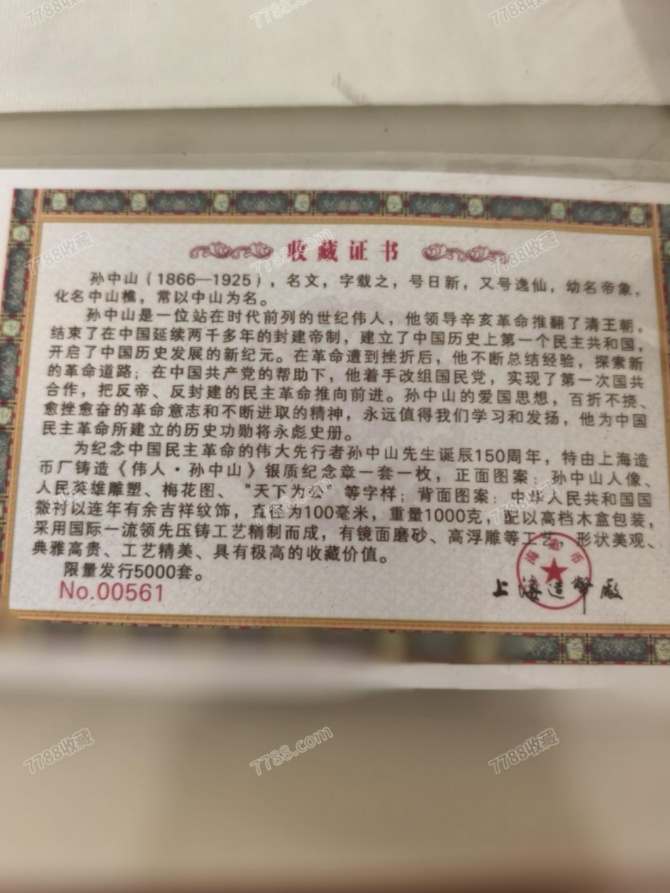 收藏证书
孙中山（1866—1925），名文，字载之，号日新，又号逸仙，幼名帝象，
化名中山樵，常以中山为名。
孙中山是一位站在时代前列的世纪伟人，他领导辛亥革命推翻了清王朝，
结束了在中国延续两千多年的封建帝制，建立了中国历史上第一个民主共和国，
开启了中国历史发展的新纪元。在革命遭到挫折后，他不断总结经验，探索新
的革命道路；在中国共产党的帮助下，他着手改组国民党，实现了第一次国共
合作，把反帝、反封建的民主革命推向前进。孙中山的爱国思想，百折不挠、
愈挫愈奋的革命意志和不断进取的精神，永远值得我们学习和发扬，他为中国
民主革命所建立的历史功勋将永彪史册。
为纪念中国民主革命的伟大先行者孙中山先生诞辰150周年，特由上海造
币厂铸造《伟人·孙中山》银质纪念章一套一枚，正面图案：孙中山人像、
人民英雄雕塑、梅花图、“天下为公”等字样；背面图案：中华人民共和国国
徽衬以连年有余吉祥纹饰，直径为100毫米，重量1000克，配以高档木盒包装，
采用国际一流领先压铸工艺精制而成，有镜面磨砂、高浮雕等工艺，形状美观、
典雅高贵、工艺精美、具有极高的收藏价值。
限量发行5000套。
No.00561
上海造币厂
7788收藏
7788.com
7788收藏
7788收藏
7788.com
7788收藏
7788收藏
7788.com
7788收藏
7788收藏
7788.com
7788收藏